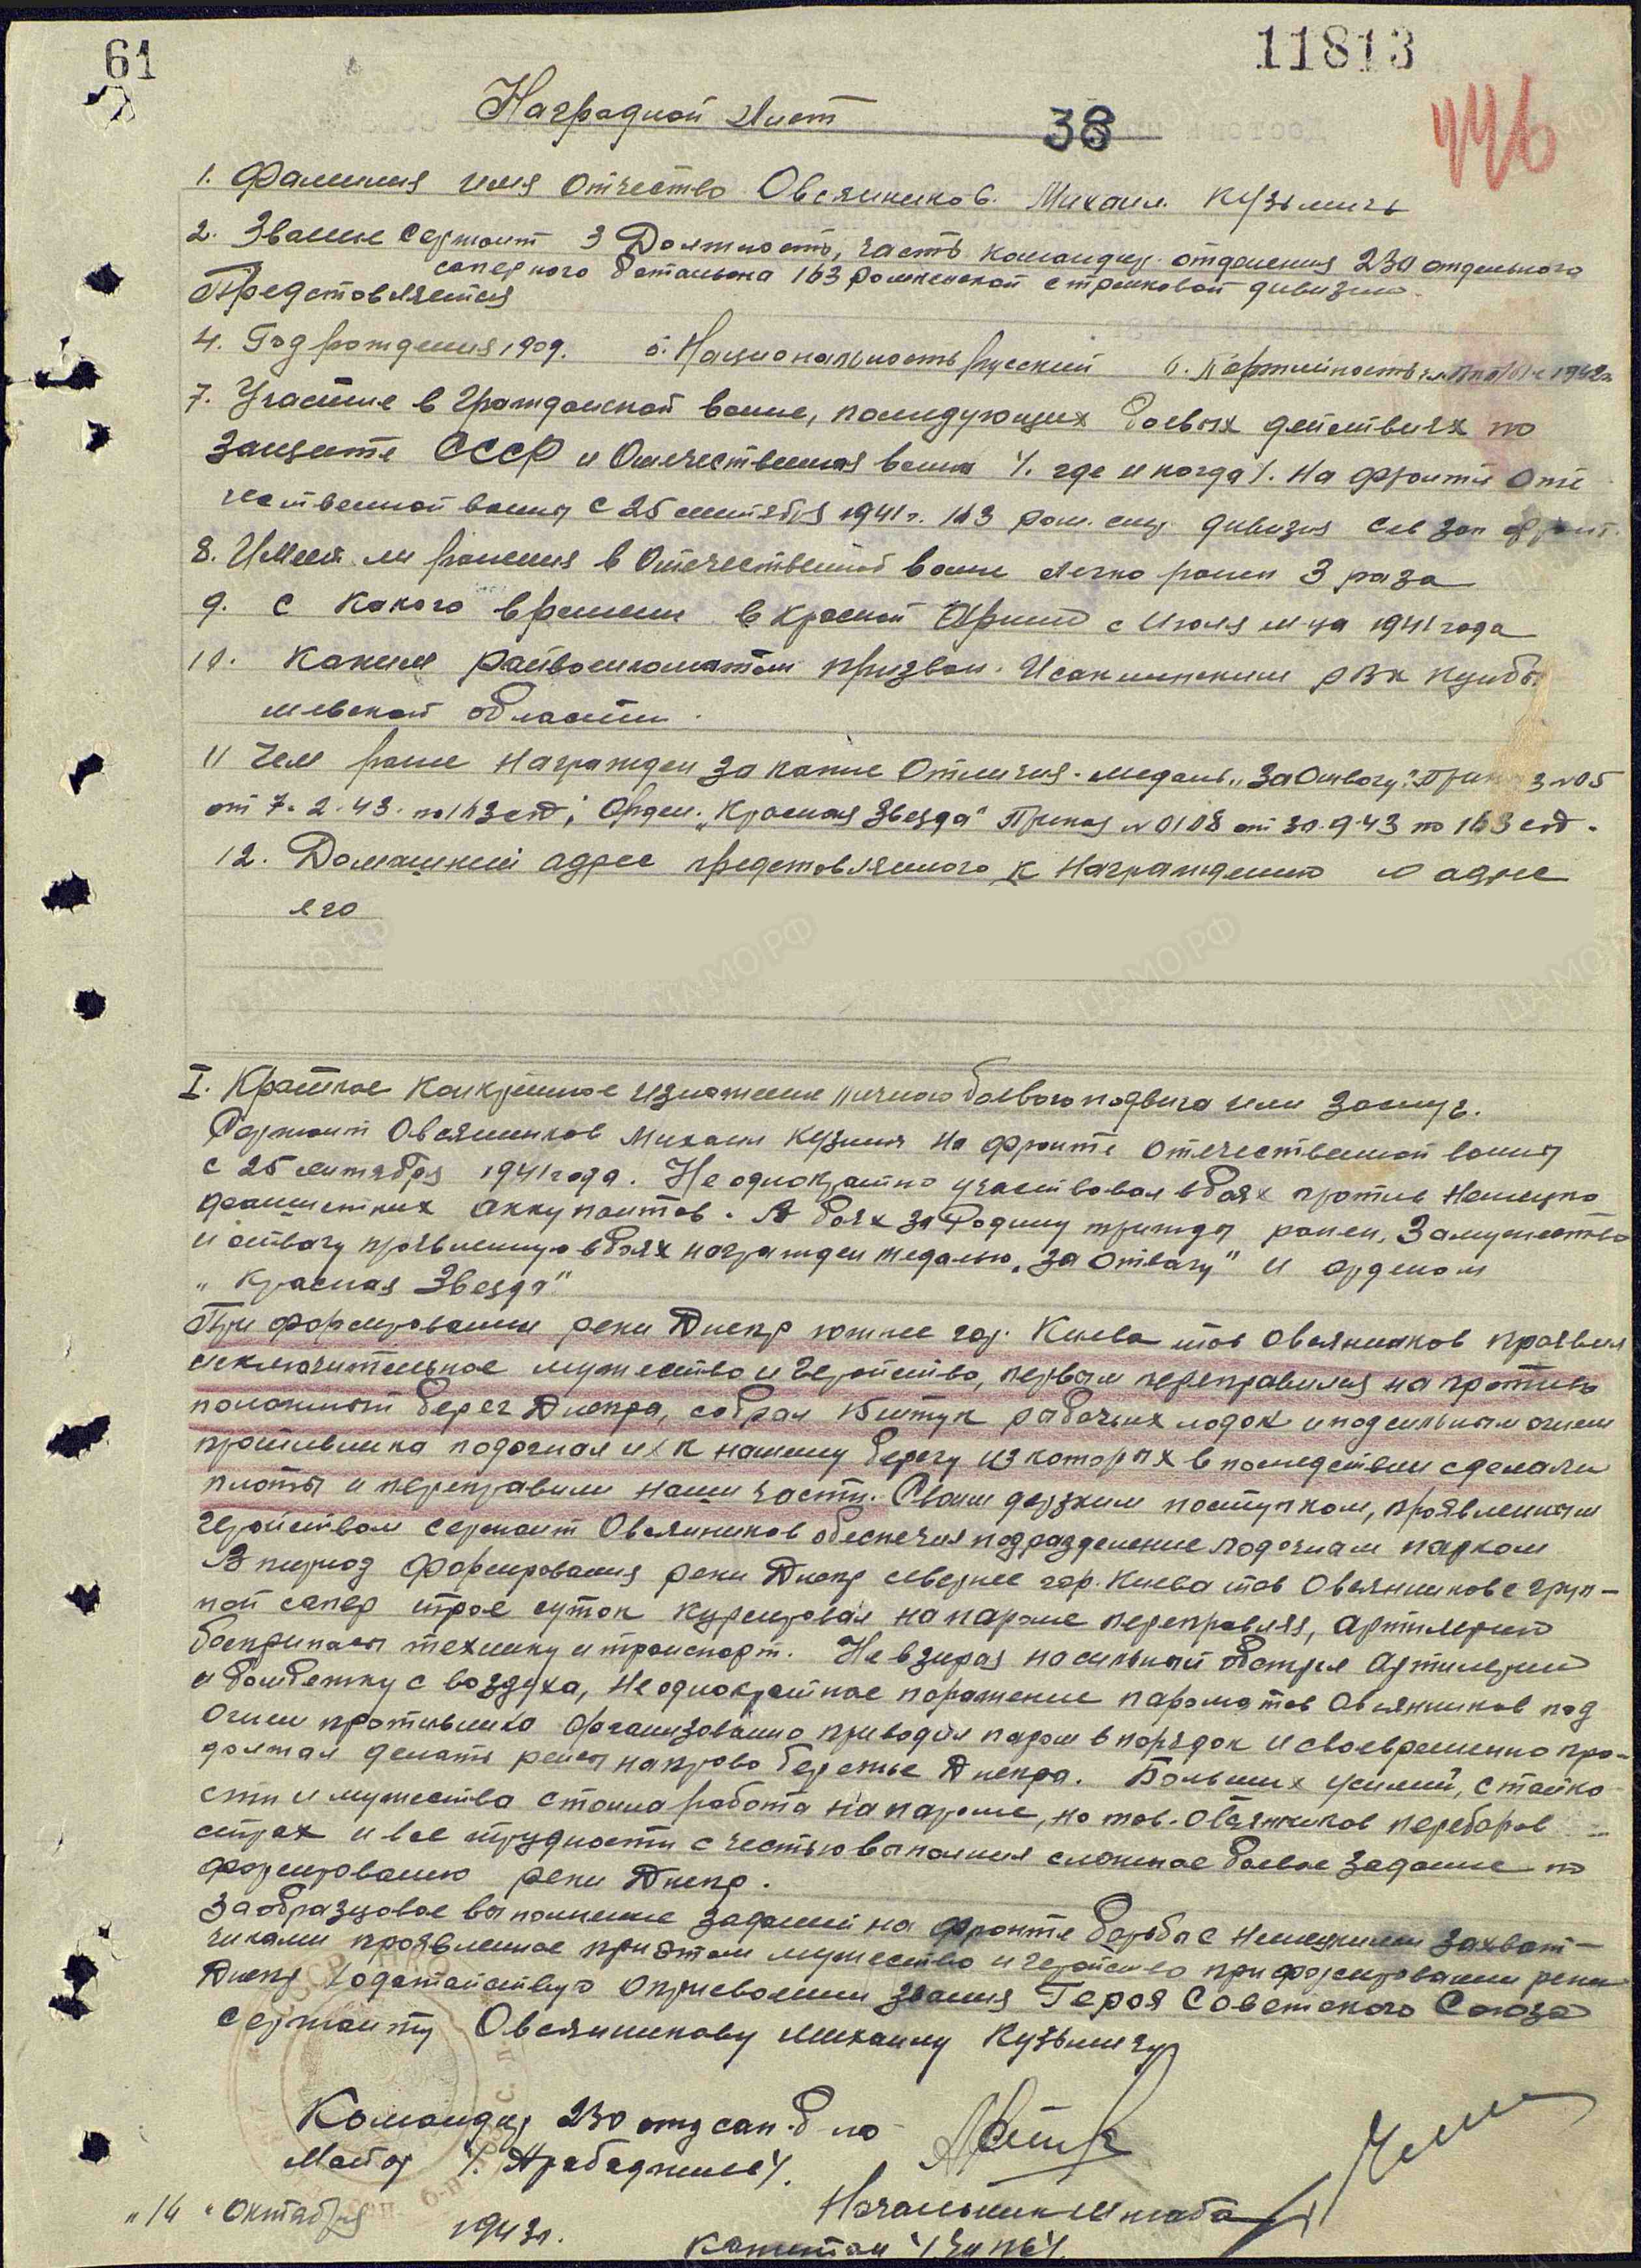 61
11813
Наградной Лист
38
446
1. Фамилия имя Отчество Овсянников. Михаил. Кузьмичь
2. Звание Сержант 3 Должность, часть командир отделения 230 отдельного
саперного батальона 163 роменской стрелковой дивизии.
Представляется
4. Год рождения 1909. 5. Национальность Русский 6. Партийность 1942г
7. Участие в Гражданской воине, последующих боевых действиях по
защите СССР и Отечественная воина /. где и когда /. На фронте Оте
чественной воины с 25 сентября 1941г. 163 ром. стр. дивизия Сев зап фронт.
8. Имеет ли ранения в Отечественной воине легко ранен 3 раза
9. С какого времени в Красной Армии с Июля м-ца 1941 года
10. Каким райвоенкоматом призван. Исаклинским РВК Куйбы
шевской области.
11 Чем ранее награжден за какие Отличия. медаль „За Отвагу". Приказ №05
от 7.2.43. по 163 сд; Орден. „Красная Звезда" Приказ №0108 от 30.9.43 по 163 сд.
12. Домашний адрес представляемого к награждению и адрес
его
I. Краткое конкретное изложение личного боевого подвига или заслуг.
Сержант Овсянников Михаил Кузмич на фронте Отечественной воины
с 25 сентября 1941 года. Неоднократно участвовал в боях против Немецко
фашистких аккупантов. В боях за Родину трижды ранен, За мужество
и отвагу проявленную в боях награжден медалью „За Отвагу" и орденом
„Красная Звезда"
При форсировании реки Днепр южнее гор. Киева тов Овсянников проявил
исключительное мужество и геройство, первым переправился на противо
положный берег Днепра, собрал 15 штук рыбачьих лодок и под сильным огнем
противника подогнал их к нашему берегу из которых в последствии сделали
плоты и переправили наши части. Своим дерзким поступком, проявленным
геройством сержант Овсянников обеспечил подразделение лодочным парком
В период форсирования реки Днепр севернее гор. Киева тов Овсянников с груп-
пой сапер трое суток курсировал на пароме переправляя, артилерию
боеприпасы технику и транспорт. Не взирая на сильный обстрел Артилерии
и бомбежку с воздуха, неоднократное поражение парома тов Овсянников под
огнем противника организованно приводил паром в порядок и своевременно про-
должал делать рейсы на право бережье Днепра. Больших усилий, стойко
сти и мужества стоила работа на пароме, но тов. Овсянников переборов
страх и все трудности с честью выполнил сложное боевое задание по
форсированию реки Днепр.
За образцовое выполнение заданий на фронте борьбы с Немецкими захват-
чиками проявленное при этом мужество и геройство при форсировании реки
Днепр ходатайствую о присвоении звания Героя Советского Союза
Сержанту Овсянникову Михаилу Кузьмичу
Командир 230 отд сап. б-на
Майор /. Арабаджиев /.
Начальник Штаба
„14" Октября 1943г.
Капитан